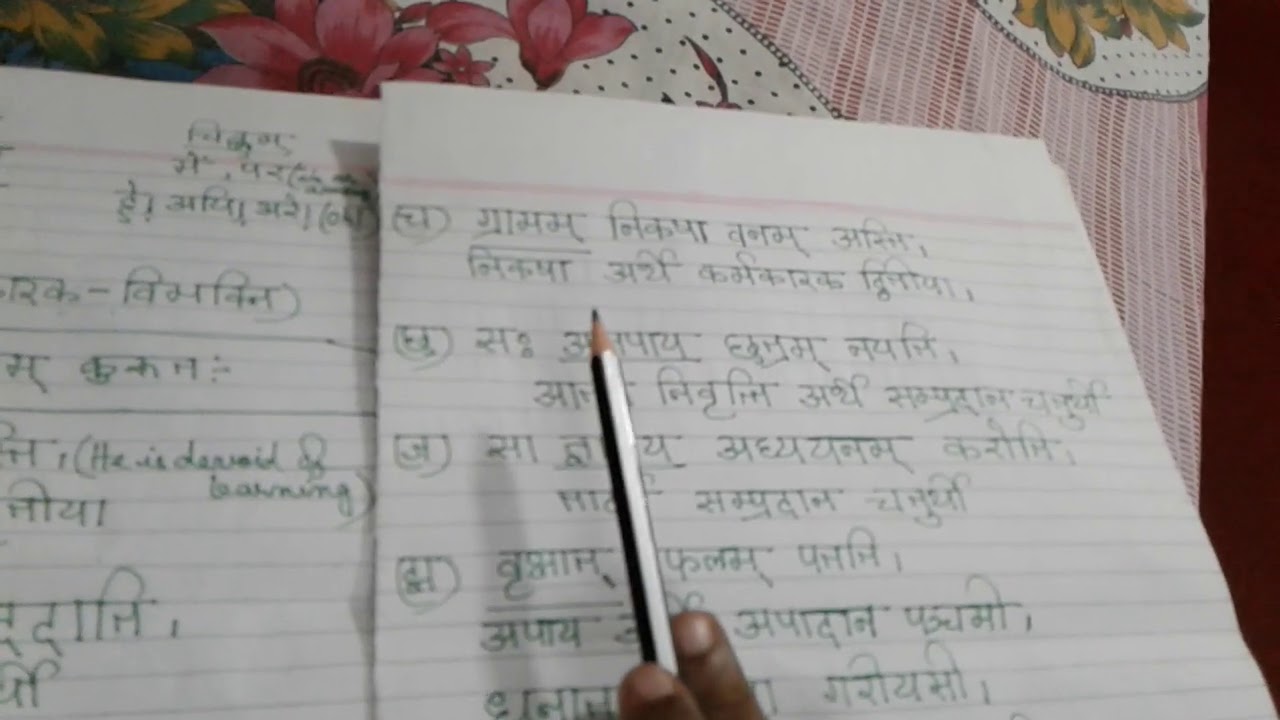 चिह्न
में, पर
है। अयि। अरे।
कारक-विभक्ति)
म् कुरुत :-
ति। (He is devoid of
learning)
तीया
ददाति।
र्थी
(च) ग्रामम् निकषा वनम् अस्ति।
निकषा अर्थे कर्मकारक द्वितीया।
(छ) सः छत्रम् नयति।
निवृत्ति अर्थे सम्प्रदान चतुर्थी
(ज) सा अध्ययनम् करोति।
सम्प्रदान चतुर्थी
(झ) वृक्षात् फलम् पतति।
अपाय अपादान पञ्चमी।
गरीयसी।